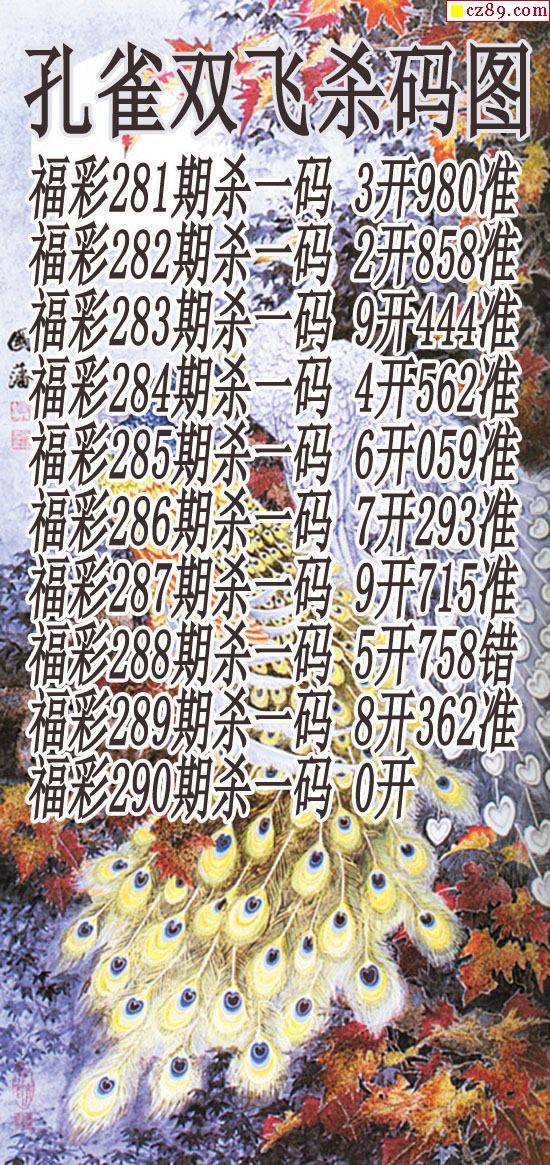 cz89.com
孔雀双飞杀码图
福彩281期杀一码 3开980准
福彩282期杀一码 2开858准
福彩283期杀一码 9开444准
福彩284期杀一码 4开562准
福彩285期杀一码 6开059准
福彩286期杀一码 7开293准
福彩287期杀一码 9开715准
福彩288期杀一码 5开758错
福彩289期杀一码 8开362准
福彩290期杀一码 0开